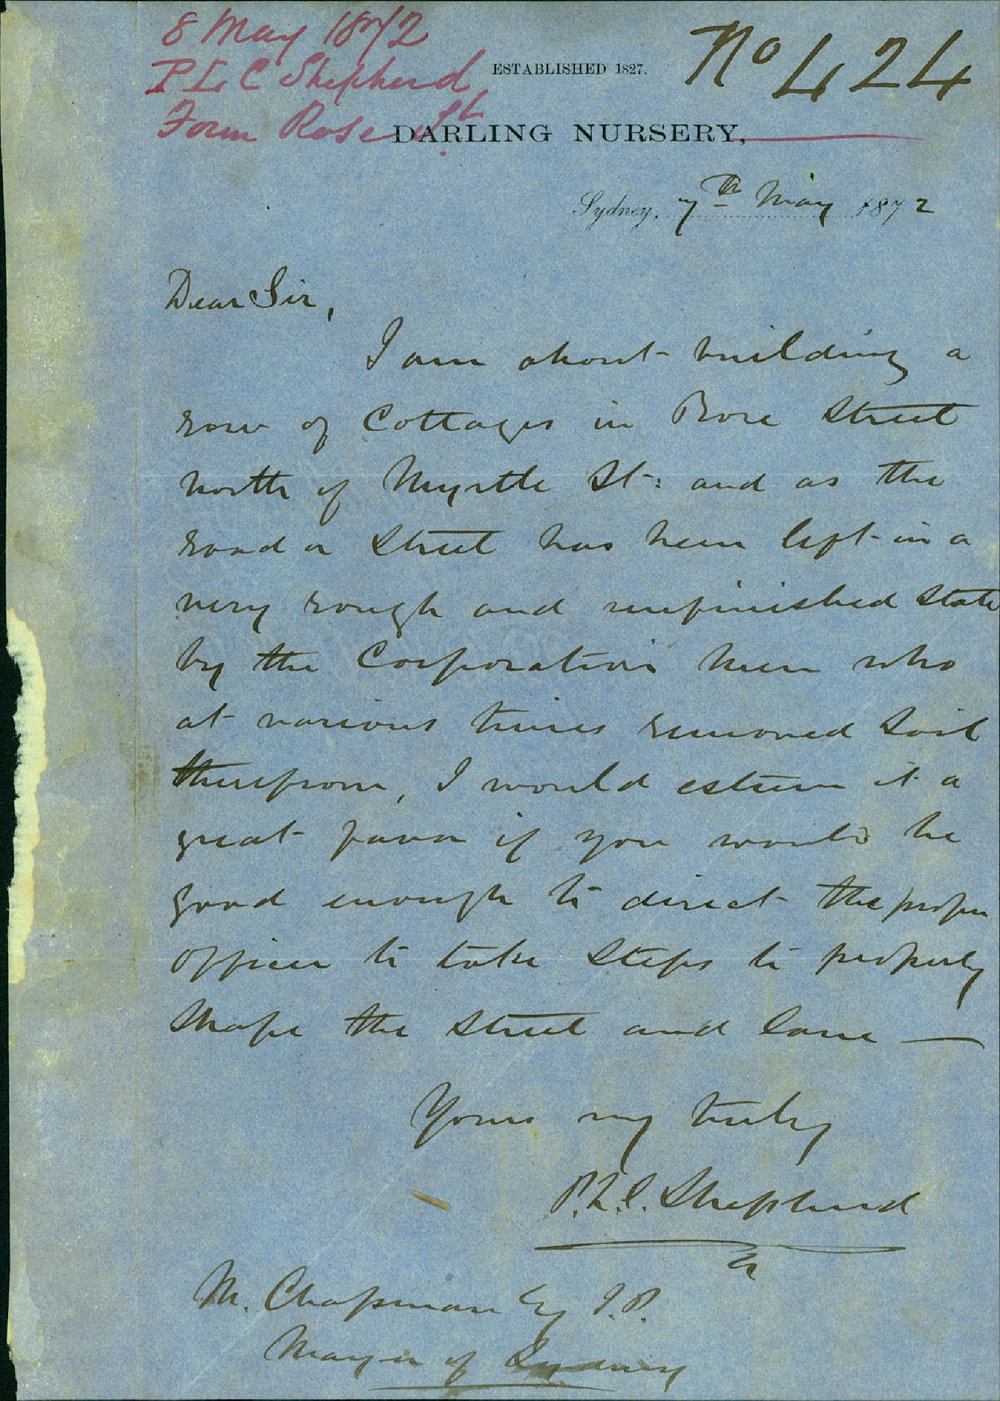 8 May 1872
P L C Shepherd
Form Rose St
No 424
ESTABLISHED 1827.
DARLING NURSERY,
Sydney, 7th May 1872
Dear Sir,
I am about building a
row of Cottages in Rose Street
north of Myrtle St: and as the
road or Street has been left in a
very rough and unfinished State
by the Corporation men who
at various times removed Soil
therefrom, I would esteem it a
great favor if you would be
good enough to direct the proper
Officer to take Steps to properly
Shape the Street and lane —
Yours very truly
P. L. C. Shepherd
M. Chapman Esq J.P.
Mayor of Sydney